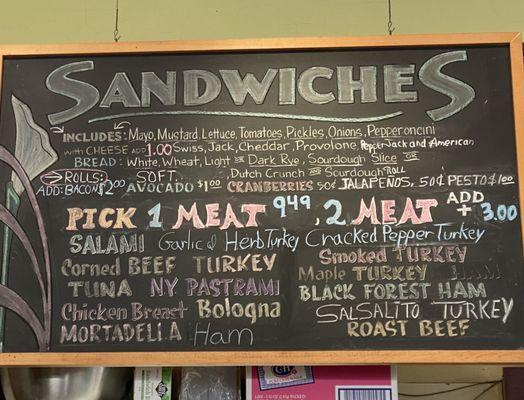 SANDWICHES
INCLUDES: Mayo, Mustard, Lettuce, Tomatoes, Pickles, Onions, Pepperoncini
with CHEESE ADD 1.00 Swiss, Jack, Cheddar, Provolone, Pepper Jack and American
BREAD: White, Wheat, Light OR Dark Rye, Sourdough Slice OR
ROLLS: SOFT, Dutch Crunch OR Sourdough ROLL
ADD: BACON $2.00 AVOCADO $1.00 CRANBERRIES 50¢ JALAPENOS, 50¢ PESTO $1.00
PICK 1 MEAT 9.49, 2 MEAT ADD + 3.00
SALAMI Garlic & Herb Turkey Cracked Pepper Turkey
Corned BEEF TURKEY Smoked TURKEY
TUNA NY PASTRAMI Maple TURKEY HAM
Chicken Breast Bologna BLACK FOREST HAM
MORTADELLA Ham SALSALITO TURKEY
ROAST BEEF
C&H